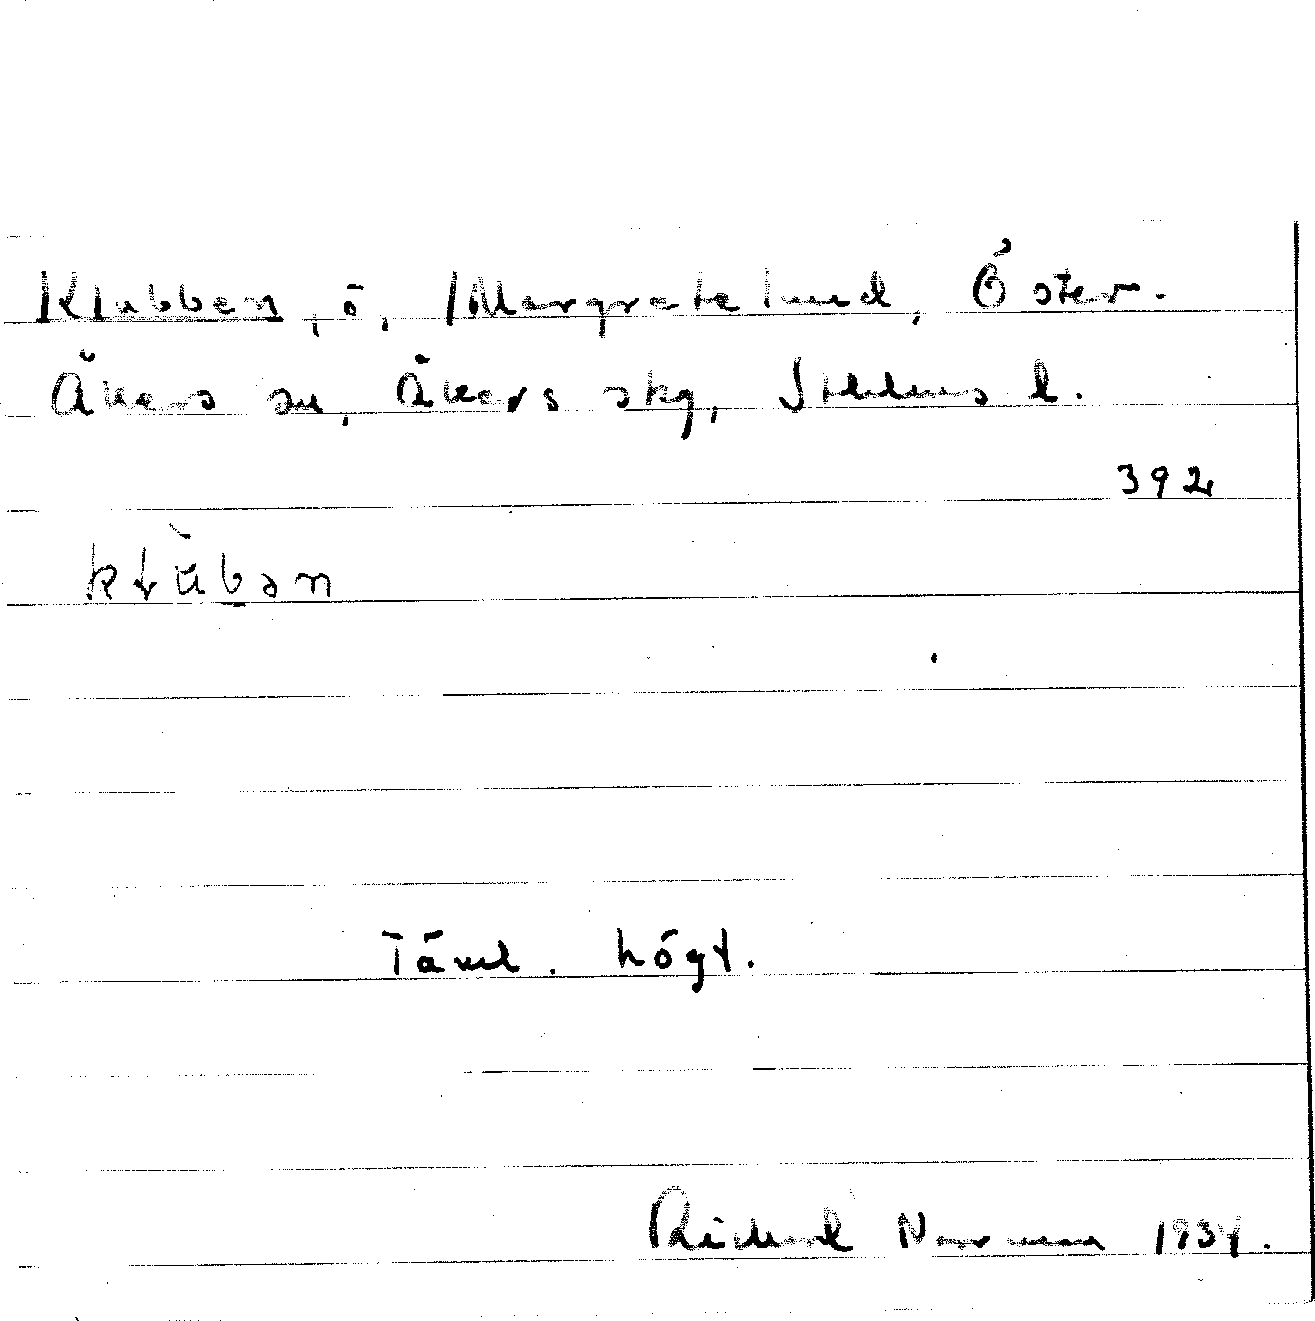 Klubben, ö, Margretelund, Öster-
Åkers sn, Åkers skg, Sthlms l.
392
klùban
Täml. högt.
Rickard Norman 1934.